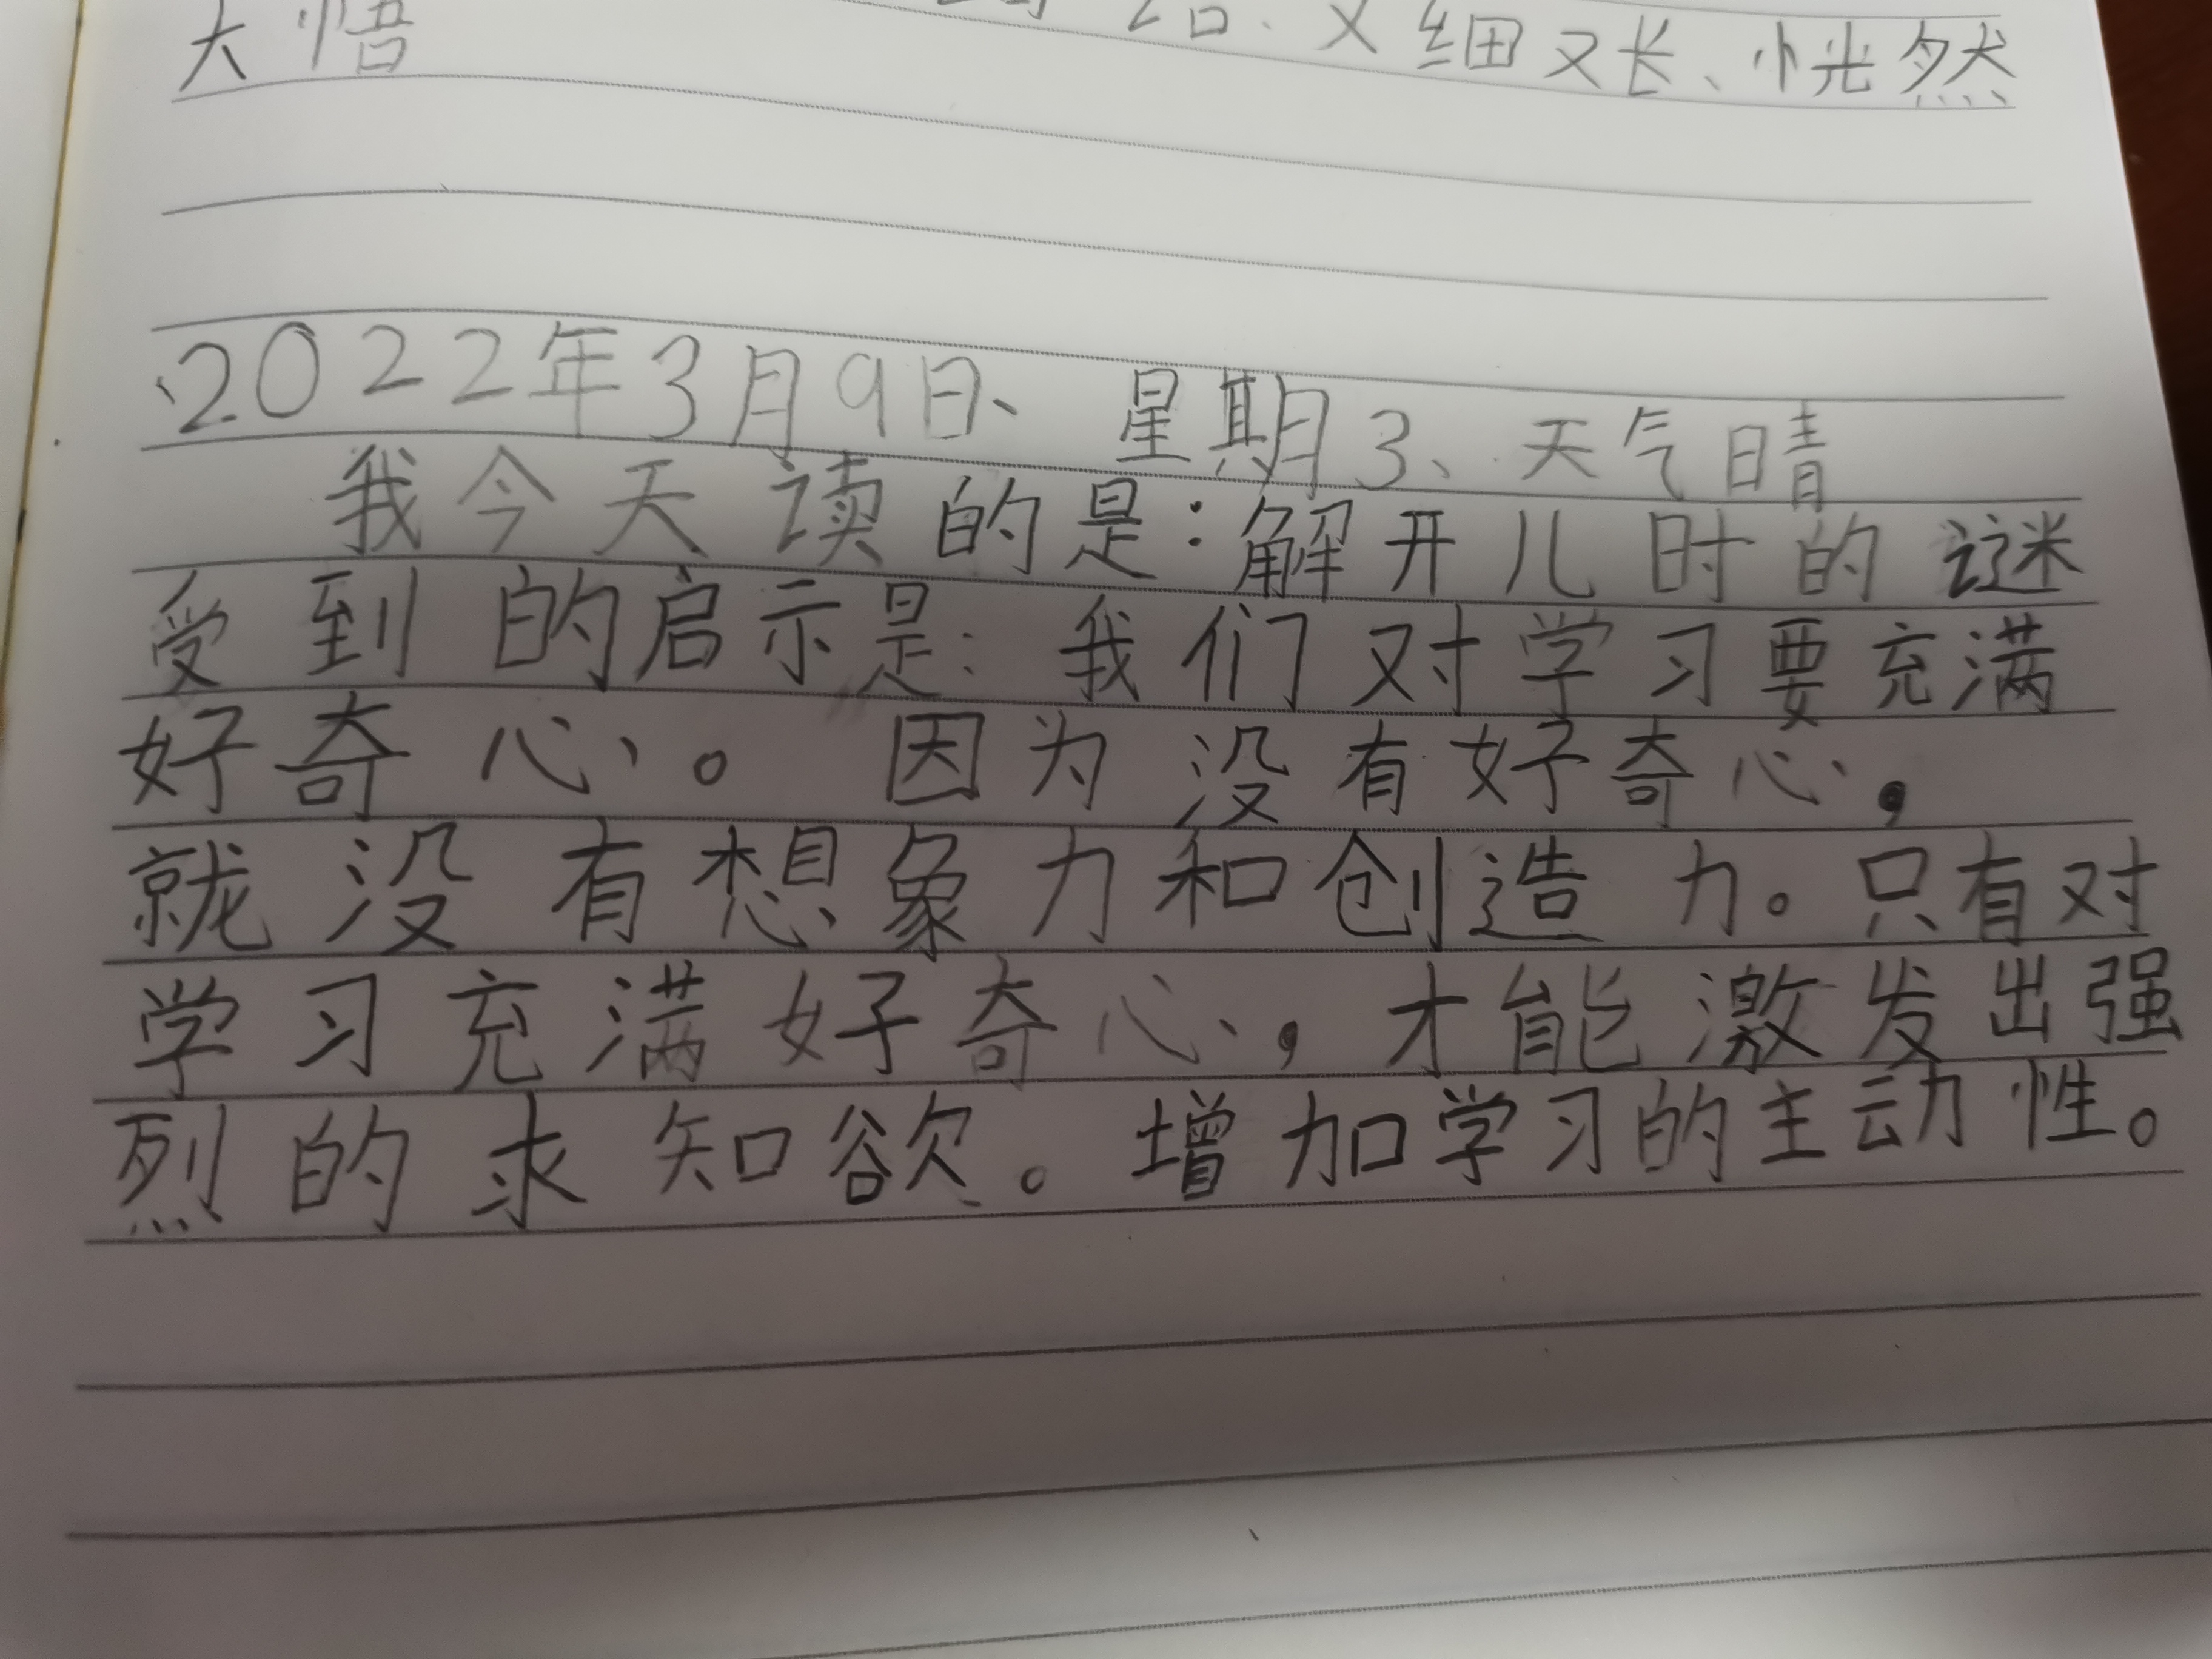 又细又长、恍然
大悟
2022年3月9日、星期3、天气晴
我今天读的是：解开儿时的谜
受到的启示是：我们对学习要充满
好奇心。因为没有好奇心，
就没有想象力和创造力。只有对
学习充满好奇心，才能激发出强
烈的求知欲。增加学习的主动性。